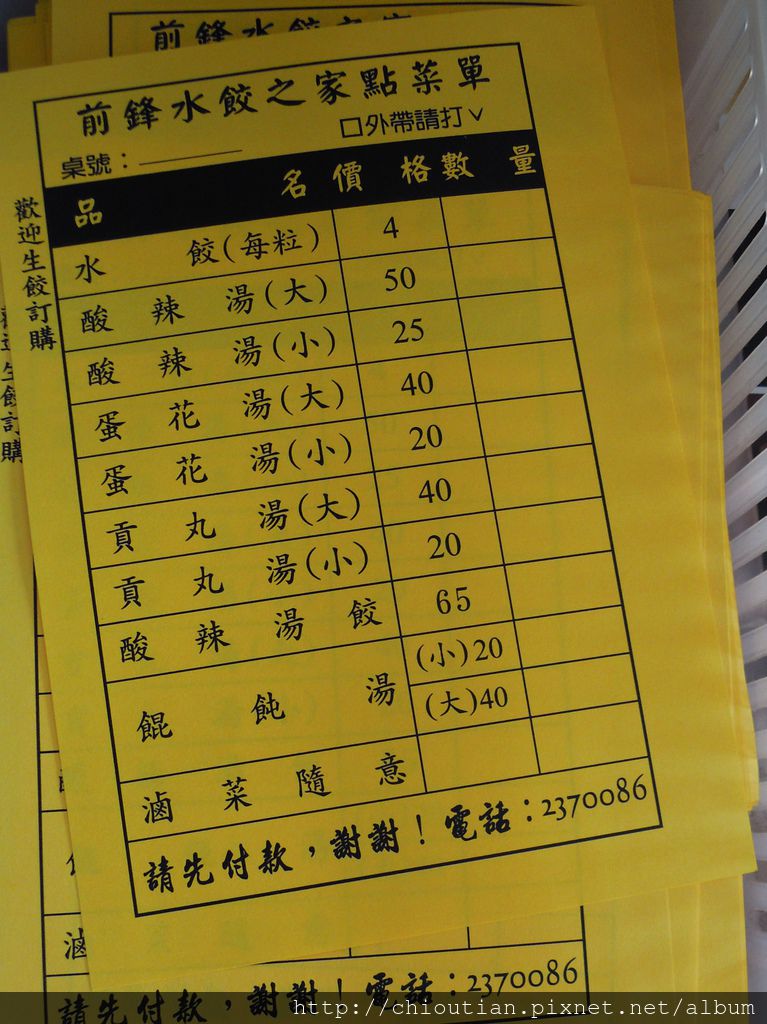 前鋒水餃之家
前鋒水餃之家點菜單
桌號：
口外帶請打ˇ
品名 價格 數量
水餃(每粒) 4
酸辣湯(大) 50
酸辣湯(小) 25
蛋花湯(大) 40
蛋花湯(小) 20
貢丸湯(大) 40
貢丸湯(小) 20
酸辣湯餃 65
餛飩湯 (小)20
(大)40
滷菜隨意
請先付款，謝謝！電話：2370086
歡迎生餃訂購
歡迎生餃訂購
滷
請先付款，謝謝！電話：2370086
http://chioutian.pixnet.net/album